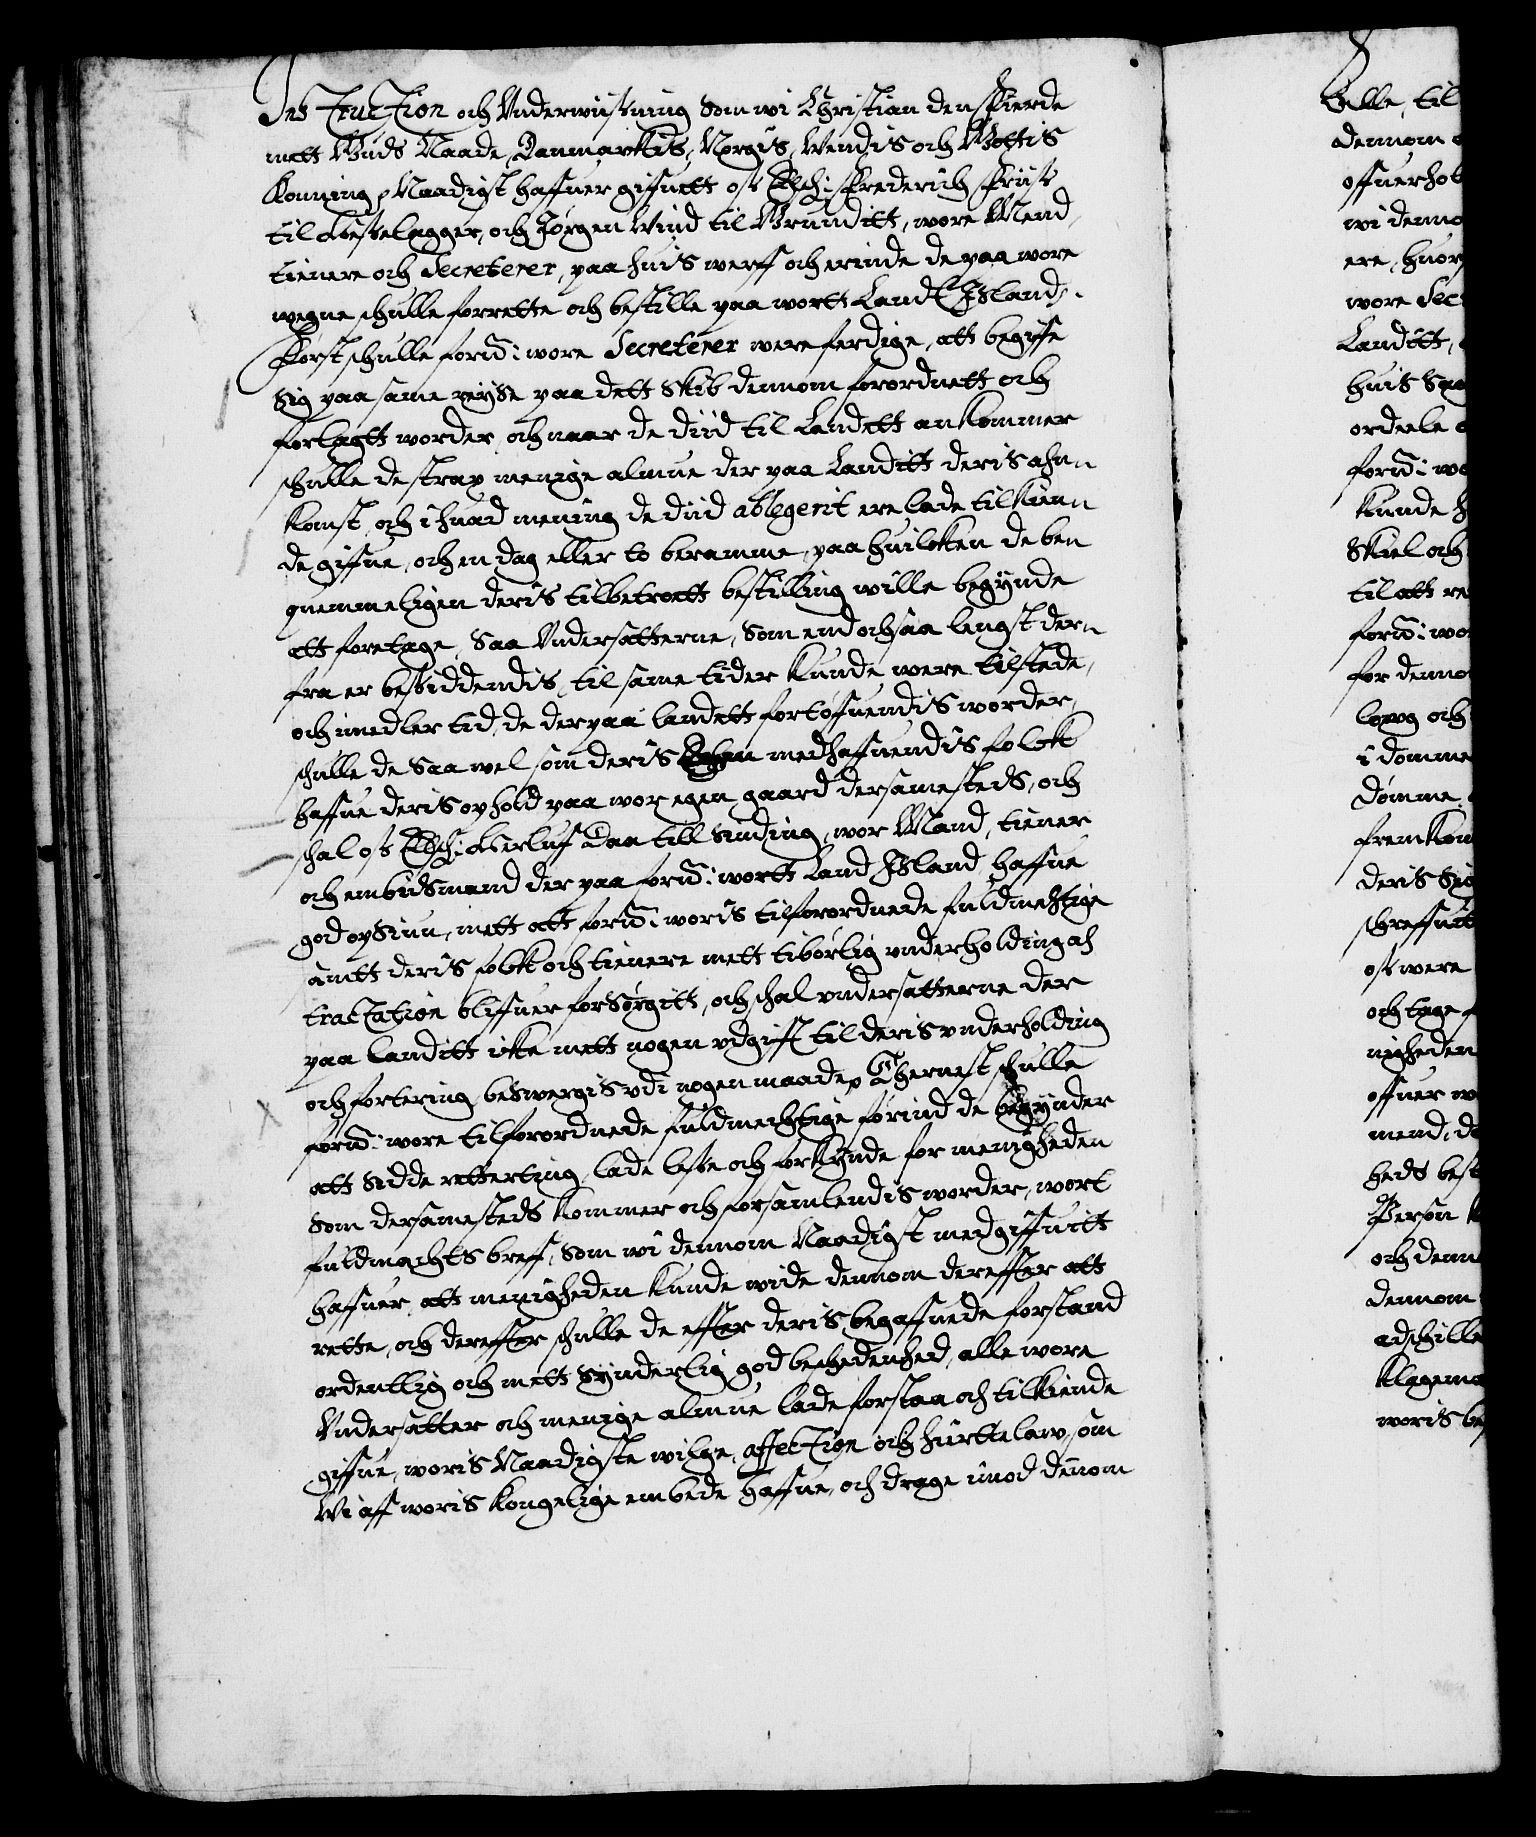 InsTrucTion och Vnderwiisning Som wi Christian den fierde
mett Guds Naade, Danmarkis, Norgis, Wendis och Gottis
Konning, Naadigst haffuer giffuett oss Elsch: Frederich Friis
til Hesselagger, och Jørgen Wind til Grunditt, wore Mend,
tienere och Secreterer, paa huis werff och erinde de paa wore
wegne schulle forrette och bestille paa wortt Landt Island.
Forst schulle forn: wore Secreterer were ferdige, att begiffe
Sig paa same reyse paa dett Skib dennom forordnett och
forlagtt worder, och naar de diid til Landett ankommer
schulle de strax menige almue der paa Landitt deris ahn
komst och i huad mening de diid ablegerit ere lade tilkien
de giffue, och en dag eller to beramme, paa huilcken de ben
quemmeligen deris tilbetroett bestilling wille begynde
ett foretage, Saa Vndersatterne, Som end ochsaa lengst der
fra er besiddendis, til same tider kunde were tilstede,
och imedler tid, de der paa landett fortøffuendis worder,
schulle de Saa wel som deris medhaffuendis folck
haffue deris ophold paa wor egen gaard dersamesteds, och
schal oss Elsch: Herluf Daa till Snding, wor Mand, tiener
och embidsmand der paa forn: wortt Land Island haffue
god opsiun, mett att forn: woris tilforordnede fuldmechtige
samtt deris folck och tienere mett tibørlig vnderholding och
tracTation bliffuer forsørgitt, och schal vndersatterne der
paa landitt icke mett nogen vdgifft til deris vnderholding
och fortering beswergis vdi nogen maade, Thernest schulle
forn: wore tilforordnede fuldmechtige førind de begynder
att Sidde retterting, lade lesse och forkynde for menigheden
Som dersamesteds kommer och forsamlendis worder, wort
fuldmachts breff, Som wi dennom Naadigst medgiffuitt
haffuer, att menigheden kunde wide dennom dereffter att
rette, och dereffter schulle de effter deris begaffuede forstand
ordentlig och mett Synderlig god beschedenhed, alle wore
Vndersatter och menige almue lade forstaa och tilkiende
giffue, woris Naadigste wilge, affecTion och hiertelaw, som
Wi aff woris kongelige embede haffue, och drage imod dennom
Selle, til
dennom
offuerhol
wi denno
ere, huor
wore Sec
Landitt,
huis Sag
ordeele
forn: wo
kunde
Skiel och
til att re
forn: wo
for denno
lowg och
i domme
dømme
fremkom
deris Sig
schreffuit
oss were
och tage
nigheden
offuer
mend, de
heds best
Person
och denn
dennom
adschille
klagema
woris be